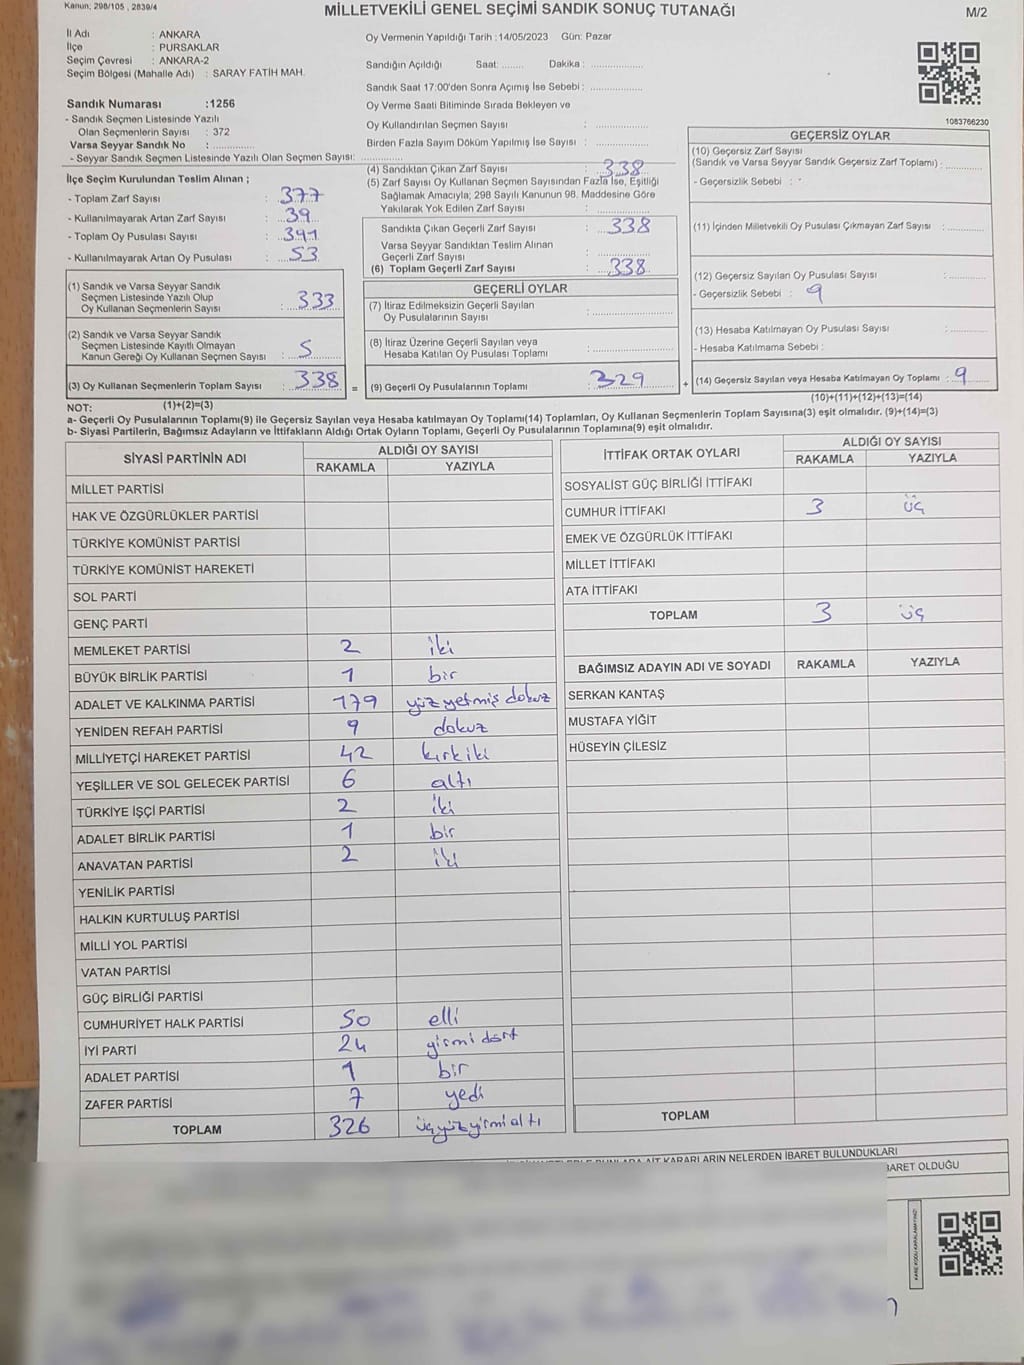 Kanun: 298/105 , 2839/4
MİLLETVEKİLİ GENEL SEÇİMİ SANDIK SONUÇ TUTANAĞI
M/2
İl Adı : ANKARA
İlçe : PURSAKLAR
Seçim Çevresi : ANKARA-2
Seçim Bölgesi (Mahalle Adı) : SARAY FATİH MAH.
Sandık Numarası :1256
- Sandık Seçmen Listesinde Yazılı
Olan Seçmenlerin Sayısı : 372
Varsa Seyyar Sandık No : ..............
- Seyyar Sandık Seçmen Listesinde Yazılı Olan Seçmen Sayısı: ..............
İlçe Seçim Kurulundan Teslim Alınan ;
- Toplam Zarf Sayısı : 377
- Kullanılmayarak Artan Zarf Sayısı : 39
- Toplam Oy Pusulası Sayısı : 391
- Kullanılmayarak Artan Oy Pusulası : 53
(1) Sandık ve Varsa Seyyar Sandık
Seçmen Listesinde Yazılı Olup
Oy Kullanan Seçmenlerin Sayısı : 333
(2) Sandık ve Varsa Seyyar Sandık
Seçmen Listesinde Kayıtlı Olmayan
Kanun Gereği Oy Kullanan Seçmen Sayısı : 5
(3) Oy Kullanan Seçmenlerin Toplam Sayısı : 338
(1)+(2)=(3)
Oy Vermenin Yapıldığı Tarih :14/05/2023 Gün: Pazar
Sandığın Açıldığı Saat: ........ Dakika : ..............
Sandık Saat 17:00'den Sonra Açımış İse Sebebi : ..............
Oy Verme Saati Bitiminde Sırada Bekleyen ve
Oy Kullandırılan Seçmen Sayısı : ..............
Birden Fazla Sayım Döküm Yapılmış İse Sayısı : ..............
(4) Sandıktan Çıkan Zarf Sayısı : 338
(5) Zarf Sayısı Oy Kullanan Seçmen Sayısından Fazla İse, Eşitliği
Sağlamak Amacıyla; 298 Sayılı Kanunun 98. Maddesine Göre
Yakılarak Yok Edilen Zarf Sayısı : ..............
Sandıkta Çıkan Geçerli Zarf Sayısı : 338
Varsa Seyyar Sandıktan Teslim Alınan
Geçerli Zarf Sayısı : ..............
(6) Toplam Geçerli Zarf Sayısı : 338
GEÇERLİ OYLAR
(7) İtiraz Edilmeksizin Geçerli Sayılan
Oy Pusulalarının Sayısı : ..............
(8) İtiraz Üzerine Geçerli Sayılan veya
Hesaba Katılan Oy Pusulası Toplamı : ..............
= (9) Geçerli Oy Pusulalarının Toplamı : 329
1083766230
GEÇERSİZ OYLAR
(10) Geçersiz Zarf Sayısı
(Sandık ve Varsa Seyyar Sandık Geçersiz Zarf Toplamı) : ........
- Geçersizlik Sebebi :
(11) İçinden Milletvekili Oy Pusulası Çıkmayan Zarf Sayısı : ........
(12) Geçersiz Sayılan Oy Pusulası Sayısı : ........
- Geçersizlik Sebebi : 9
(13) Hesaba Katılmayan Oy Pusulası Sayısı : ........
- Hesaba Katılmama Sebebi :
+ (14) Geçersiz Sayılan veya Hesaba Katılmayan Oy Toplamı : 9
(10)+(11)+(12)+(13)=(14)
NOT:
a- Geçerli Oy Pusulalarının Toplamı(9) ile Geçersiz Sayılan veya Hesaba katılmayan Oy Toplamı(14) Toplamları, Oy Kullanan Seçmenlerin Toplam Sayısına(3) eşit olmalıdır. (9)+(14)=(3)
b- Siyasi Partilerin, Bağımsız Adayların ve İttifakların Aldığı Ortak Oyların Toplamı, Geçerli Oy Pusulalarının Toplamına(9) eşit olmalıdır.
SİYASİ PARTİNİN ADI ALDIĞI OY SAYISI
RAKAMLA YAZIYLA
MİLLET PARTİSİ
HAK VE ÖZGÜRLÜKLER PARTİSİ
TÜRKİYE KOMÜNİST PARTİSİ
TÜRKİYE KOMÜNİST HAREKETİ
SOL PARTİ
GENÇ PARTİ
MEMLEKET PARTİSİ 2 iki
BÜYÜK BİRLİK PARTİSİ 1 bir
ADALET VE KALKINMA PARTİSİ 179 yüz yetmiş dokuz
YENİDEN REFAH PARTİSİ 9 dokuz
MİLLİYETÇİ HAREKET PARTİSİ 42 kırk iki
YEŞİLLER VE SOL GELECEK PARTİSİ 6 altı
TÜRKİYE İŞÇİ PARTİSİ 2 iki
ADALET BİRLİK PARTİSİ 1 bir
ANAVATAN PARTİSİ 2 iki
YENİLİK PARTİSİ
HALKIN KURTULUŞ PARTİSİ
MİLLİ YOL PARTİSİ
VATAN PARTİSİ
GÜÇ BİRLİĞİ PARTİSİ
CUMHURİYET HALK PARTİSİ 50 elli
İYİ PARTİ 24 yirmi dört
ADALET PARTİSİ 1 bir
ZAFER PARTİSİ 7 yedi
TOPLAM 326 üçyüzyirmi altı
İTTİFAK ORTAK OYLARI ALDIĞI OY SAYISI
RAKAMLA YAZIYLA
SOSYALİST GÜÇ BİRLİĞİ İTTİFAKI
CUMHUR İTTİFAKI 3 üç
EMEK VE ÖZGÜRLÜK İTTİFAKI
MİLLET İTTİFAKI
ATA İTTİFAKI
TOPLAM 3 üç
BAĞIMSIZ ADAYIN ADI VE SOYADI RAKAMLA YAZIYLA
SERKAN KANTAŞ
MUSTAFA YİĞİT
HÜSEYİN ÇİLESİZ
TOPLAM
AİT KARARLARIN NELERDEN İBARET BULUNDUKLARI
İBARET OLDUĞU
KARE KODU KARALAMAYINIZ!